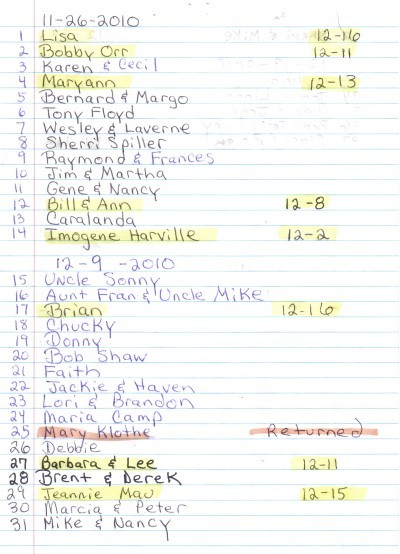 11-26-2010
1 Lisa 12-16
2 Bobby Orr 12-11
3 Karen & Cecil
4 Maryann 12-13
5 Bernard & Margo
6 Tony Floyd
7 Wesley & Laverne
8 Sherri Spiller
9 Raymond & Frances
10 Jim & Martha
11 Gene & Nancy
12 Bill & Ann 12-8
13 Caralanda
14 Imogene Harville 12-2
12-9-2010
15 Uncle Sonny
16 Aunt Fran & Uncle Mike
17 Brian 12-16
18 Chucky
19 Donny
20 Bob Shaw
21 Faith
22 Jackie & Haven
23 Lori & Brandon
24 Maria Camp
25 Mary Klothe Returned
26 Debbie
27 Barbara & Lee 12-11
28 Brent & Derek
29 Jeannie Mau 12-15
30 Marcia & Peter
31 Mike & Nancy